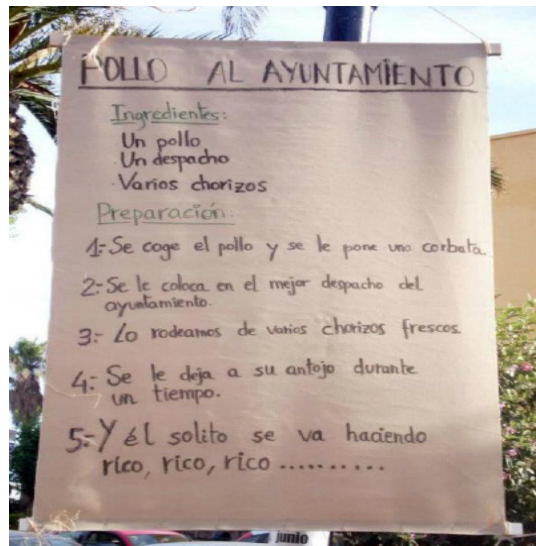 POLLO AL AYUNTAMIENTO
Ingredientes:
Un pollo
Un despacho
Varios chorizos
Preparación:
1:- Se coge el pollo y se le pone una corbata.
2:- Se le coloca en el mejor despacho del
ayuntamiento.
3:- Lo rodeamos de varios chorizos frescos.
4:- Se le deja a su antojo durante
un tiempo.
5:- Y él solito se va haciendo
rico, rico, rico ..........
junio